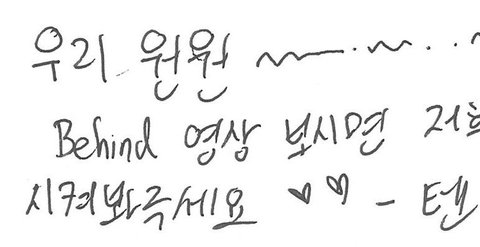 우리 원원 ~~
Behind 영상 보시면 저희
시켜봐주세요 ♡♡ - 텐